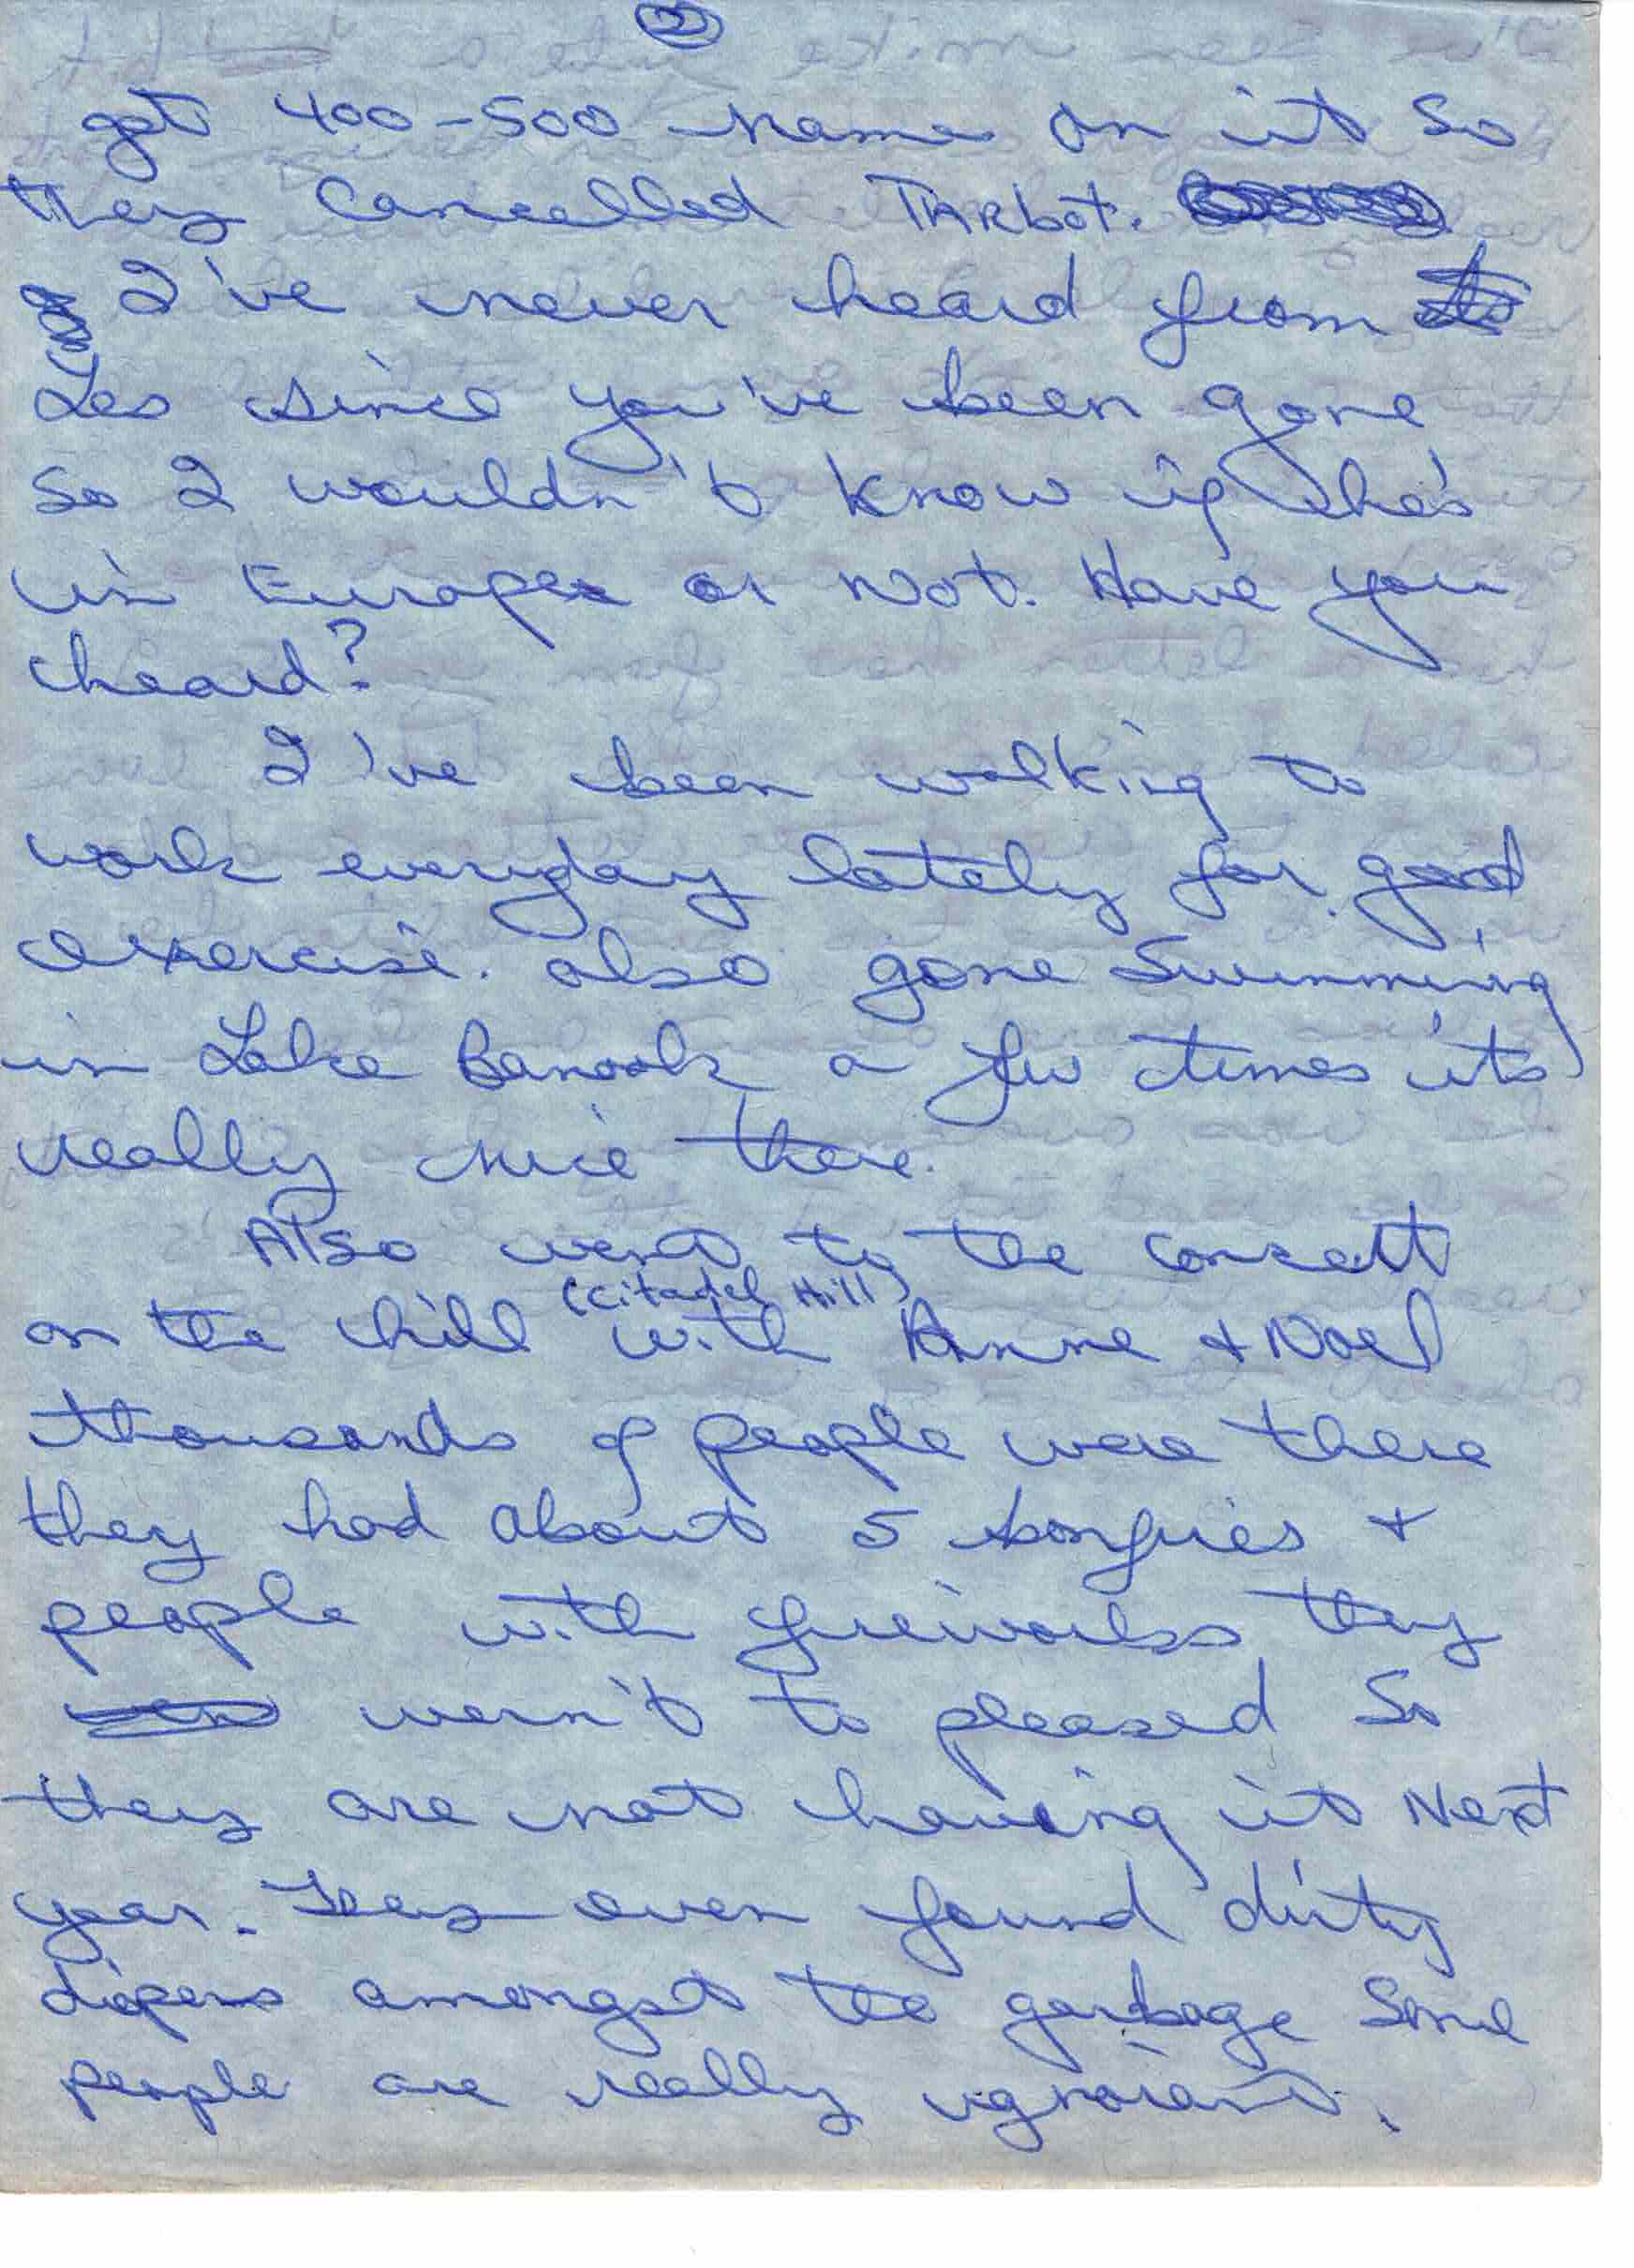 2
get 400-500 name on it so
they Cancelled TARbot.
I've never heard from
Les since you've been gone
So I wouldn't know if he's
in Europe or Not. Have you
heard?
I've been walking to
work everyday lately for good
exercise. also gone Swimming
in Lake Banook a few times its
really nice there.
Also went to the consett
(Citadel Hill)
on the hill with Anne + Noel
thousands of people were there
they had about 5 bonfires +
people with fireworks they
wern't to pleased So
they are not having it Next
year. They even found dirty
dipers amongst the garbage Some
people are really ignorant.